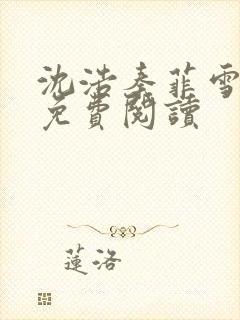 沈浩秦菲雪
免費閱讀
蓮洛